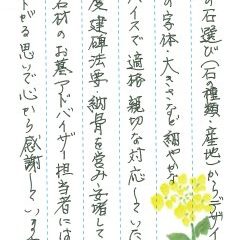 の石選び(石の種類・産地)からデザイン
の字体 大きさなど細やかな
バイスで適格、親切な対応していた
度建碑法要、納骨を営み安堵して
石材のお墓アドバイザー担当者には
下がる思いで心から感謝していま